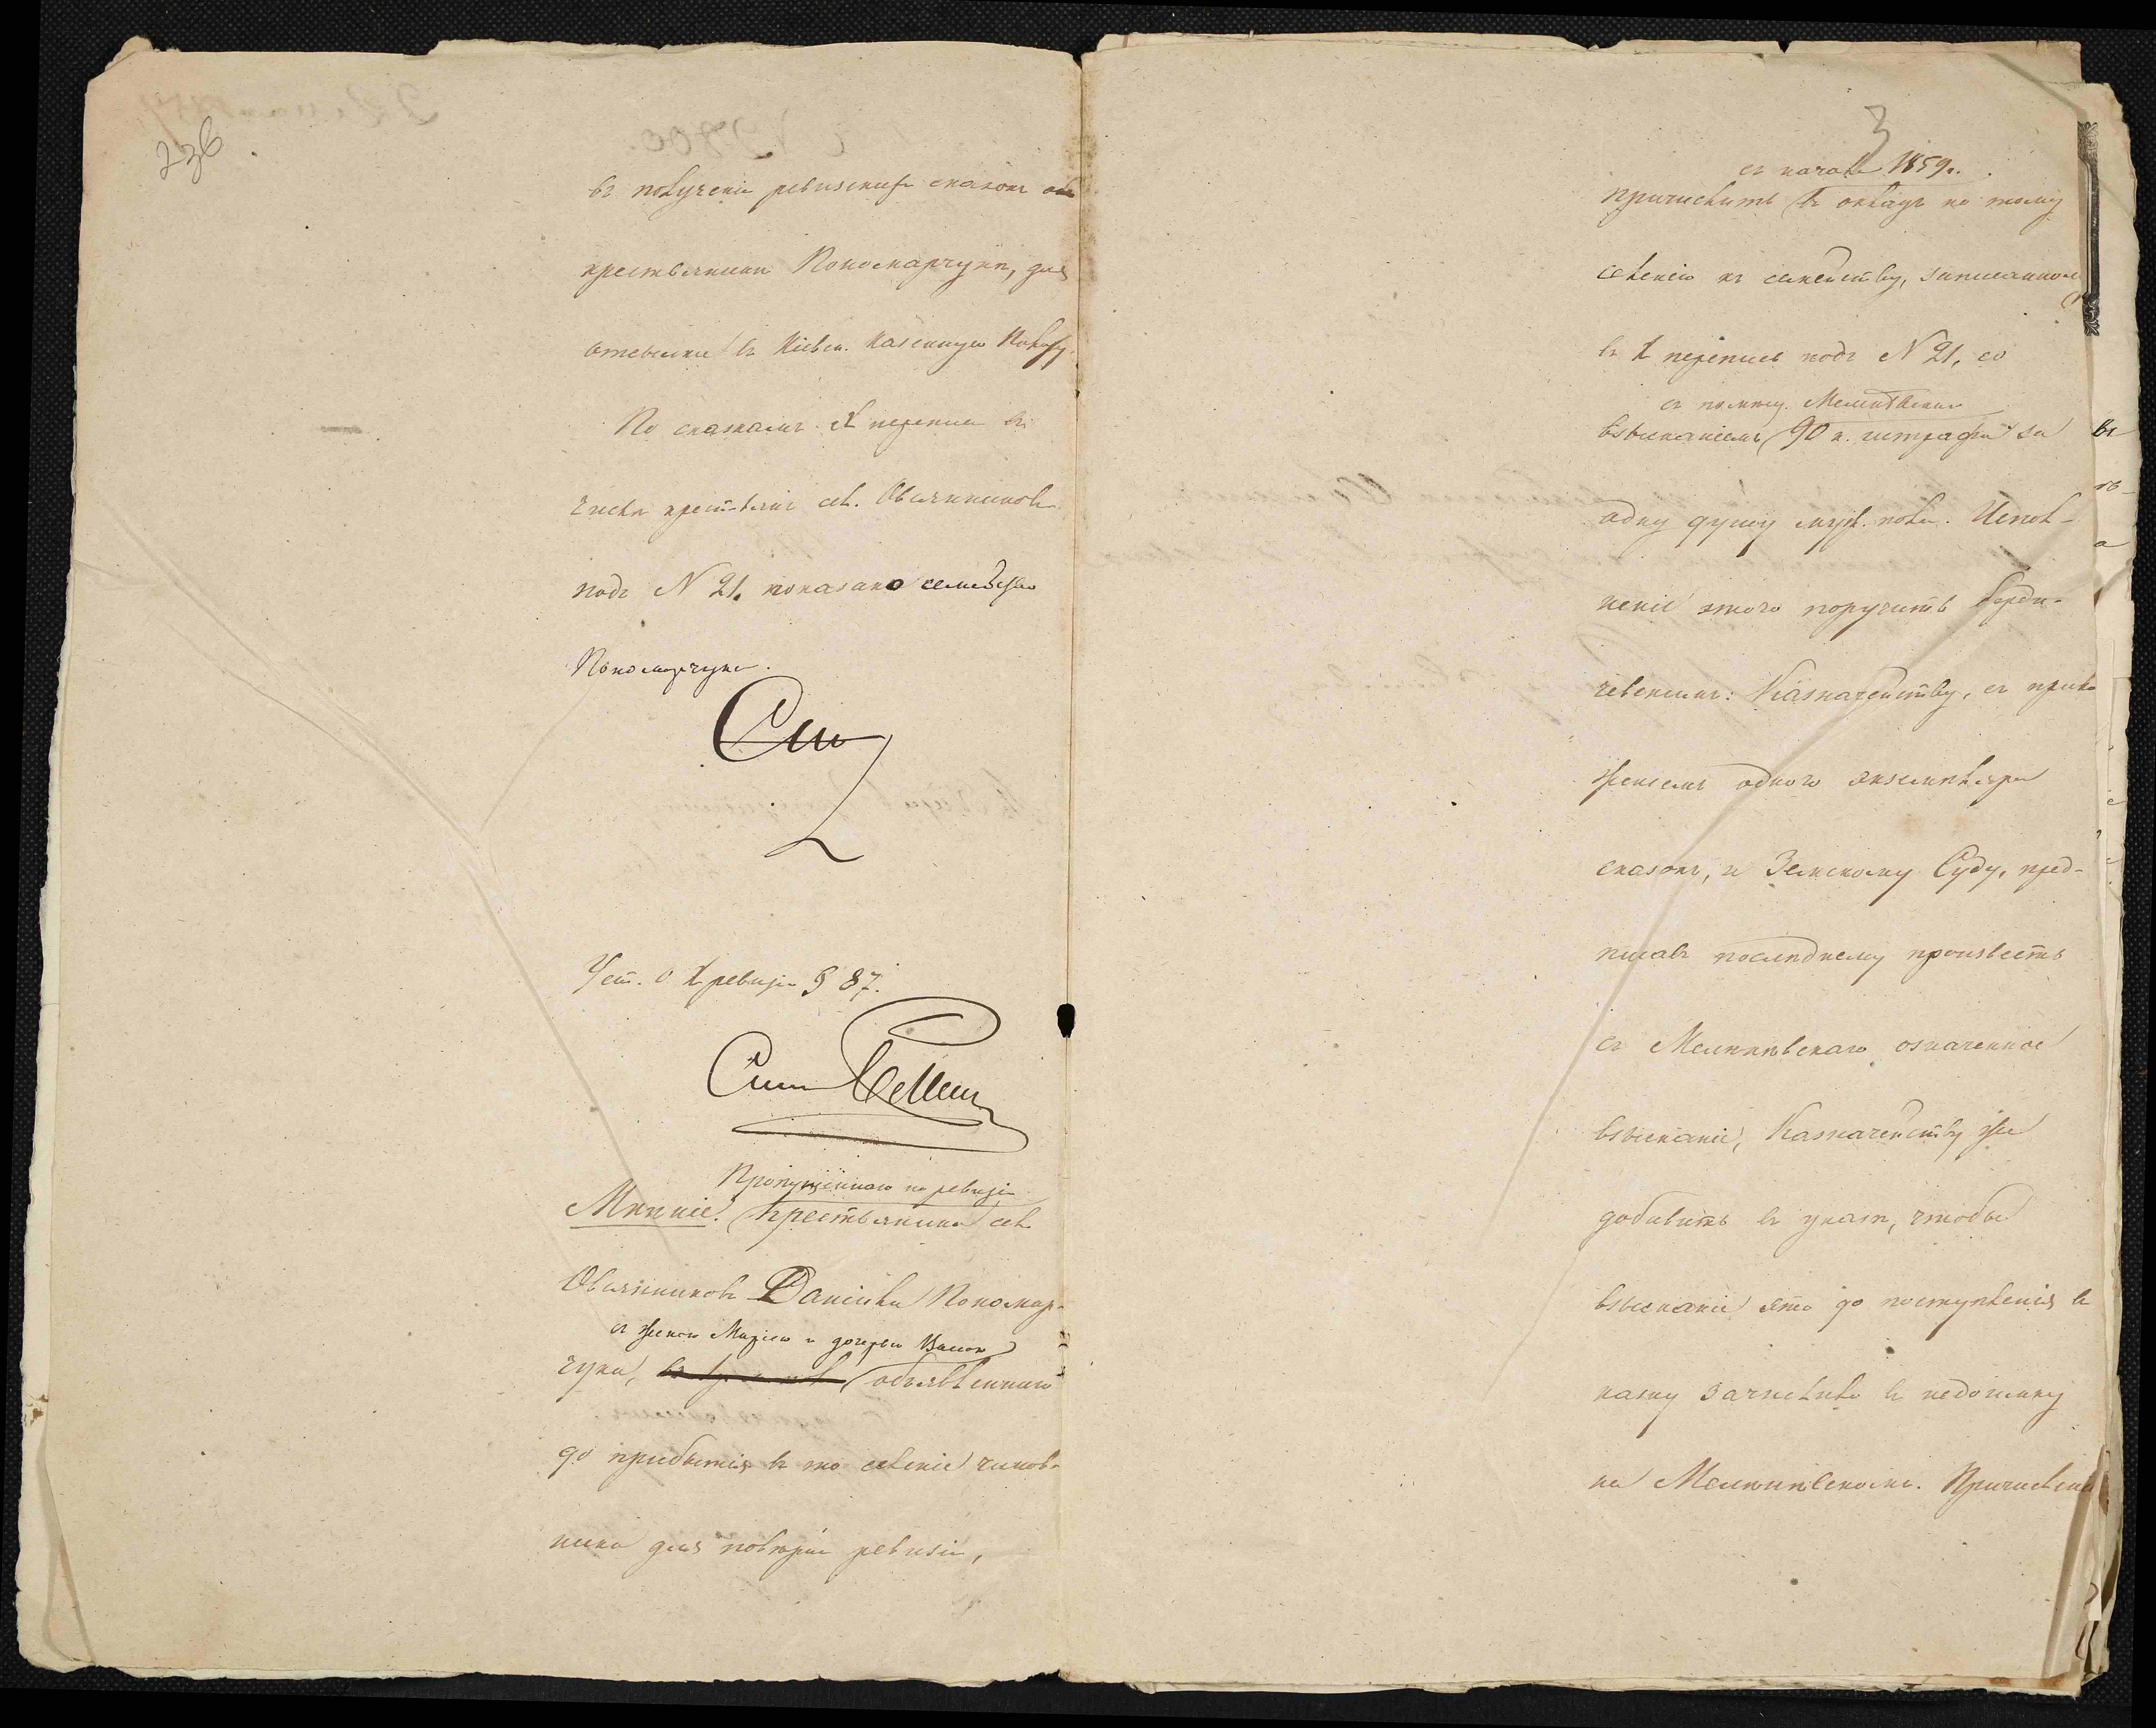 236
въ полученіи ревизскихъ сказокъ объ
крестьянинѣ Пономарчукѣ, для
отсылки въ Кіевск. Казенную Палату.
По сказкамъ X переписи въ
числѣ крестьянъ сел. Овсянниковъ
подъ N 21. показано семейство
Пономарчука.
Уст. о X ревизіи § 87.
Пропущеннаго по ревизіи
Мнѣніе. Крестьянина сел.
Овсянниковъ Даніила Пономар-
съ женою Маріею и дочерью
чука, объявленнаго
до прибытія въ то селеніе чинов-
ника для повѣрки ревизіи,
3
съ начала 1859 г.
причислить въ окладъ по тому
селенію къ семейству, записанному
въ X перепись подъ N 21, со
съ помѣщ.
взысканіемъ 90 к. штрафа за
одну душу муж. пола. Испол-
неніе этого поручить Берди-
чевскимъ: Казначейству, съ прило
женіемъ одного экземпляра
сказокъ, и Земскому Суду, пред-
писавъ послѣднему произвесть
съ означенное
взысканіе, Казначейству же
добавить въ указѣ, чтобы
взысканіе это до поступленія въ
казну зачислило въ недоимку
на Причислен